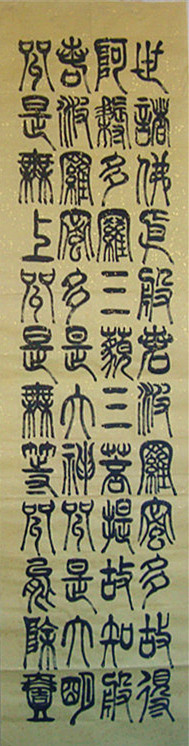 世諸佛依般若波羅蜜多故得
阿耨多羅三藐三菩提故知般
若波羅蜜多是大神咒是大明
咒是無上咒是無等〻咒能除壹